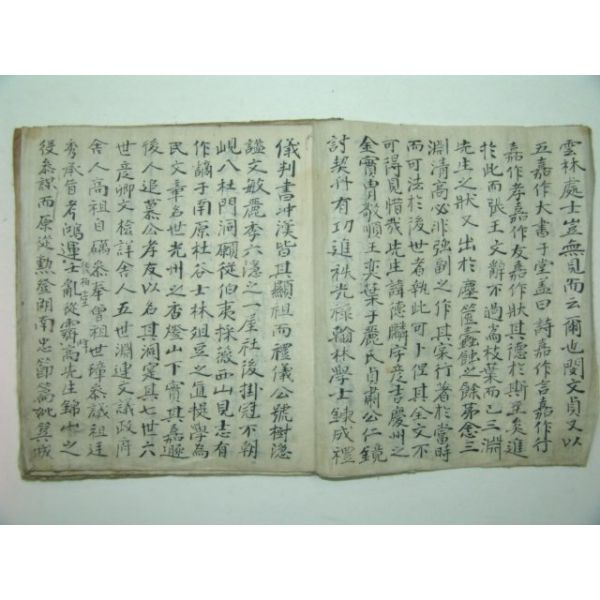 雲林處士豈無見而云爾也閔文貞又以
五嘉作大書于堂盖曰詩嘉作言嘉作行
嘉作孝嘉作友嘉作狀其德於斯至矣進
於此而張王文辭不過為枝葉而已三淵
先生之狀又出於塵篋蠹蝕之餘第念三
淵清高必非強副之作其家行著於當時
而可法於後世者執此可卜但其全文不
可得見惜哉先生諱德麟字彦吉慶州之
金實胄敬順王奕葉于麗氏貞肅公仁鏡
討契丹有功進秩光祿翰林學士鍊成禮
儀判書冲漢皆其顯祖而禮儀公號樹隱
謚文敏麗季六隱之一屋社後掛冠不朝
峴八杜門洞願從伯夷採薇西山見志有
作謫于南原杜谷士林俎豆之直提學為
民文奉名世光州之香燈山下實其嘉遯
後人追慕公孝友以名其洞寔其七世六
世彦卿文桧詳舍人五世淵連文議政府
舍人高祖自礪叅奉曾祖世璋叅議祖廷
秀承旨考鴻運士亂從霽高先生錦山之
後叅謀而原從勲登湖南忠節篇妣箕城